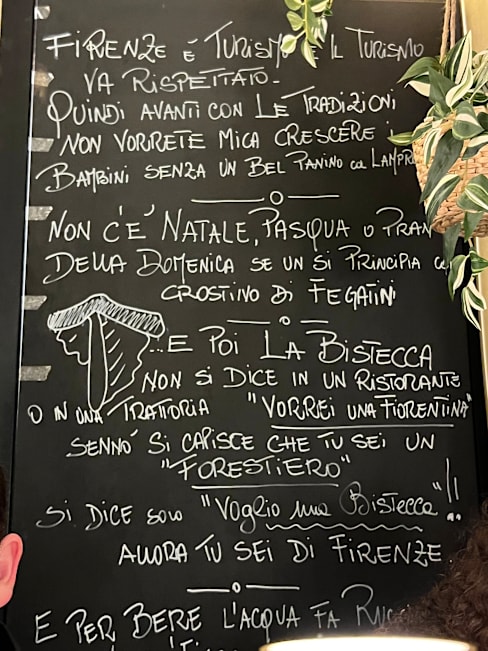 FIRENZE É TURISMO E IL TURISMO
VA RISPETTATO-
QUINDI AVANTI CON LE TRADIZIONI
NON VORRETE MICA CRESCERE I
BAMBINI SENZA UN BEL PANINO col LAMPR
NON C'E' NATALE, PASQUA O PRAN
DELLA DOMENICA SE UN SI PRINCIPIA
CROSTINO DI FEGATINI
...E POI LA BISTECCA
NON SI DICE IN UN RISTORANTE
O IN UNA TRATTORIA "VORREI UNA FIORENTINA"
SENNO' SI CAPISCE CHE TU SEI UN
"FORESTIERO"
SI DICE SOLO "VOGLIO UNA BISTECCA"!!
ALLORA TU SEI DI FIRENZE.
E PER BERE L'ACQUA FA